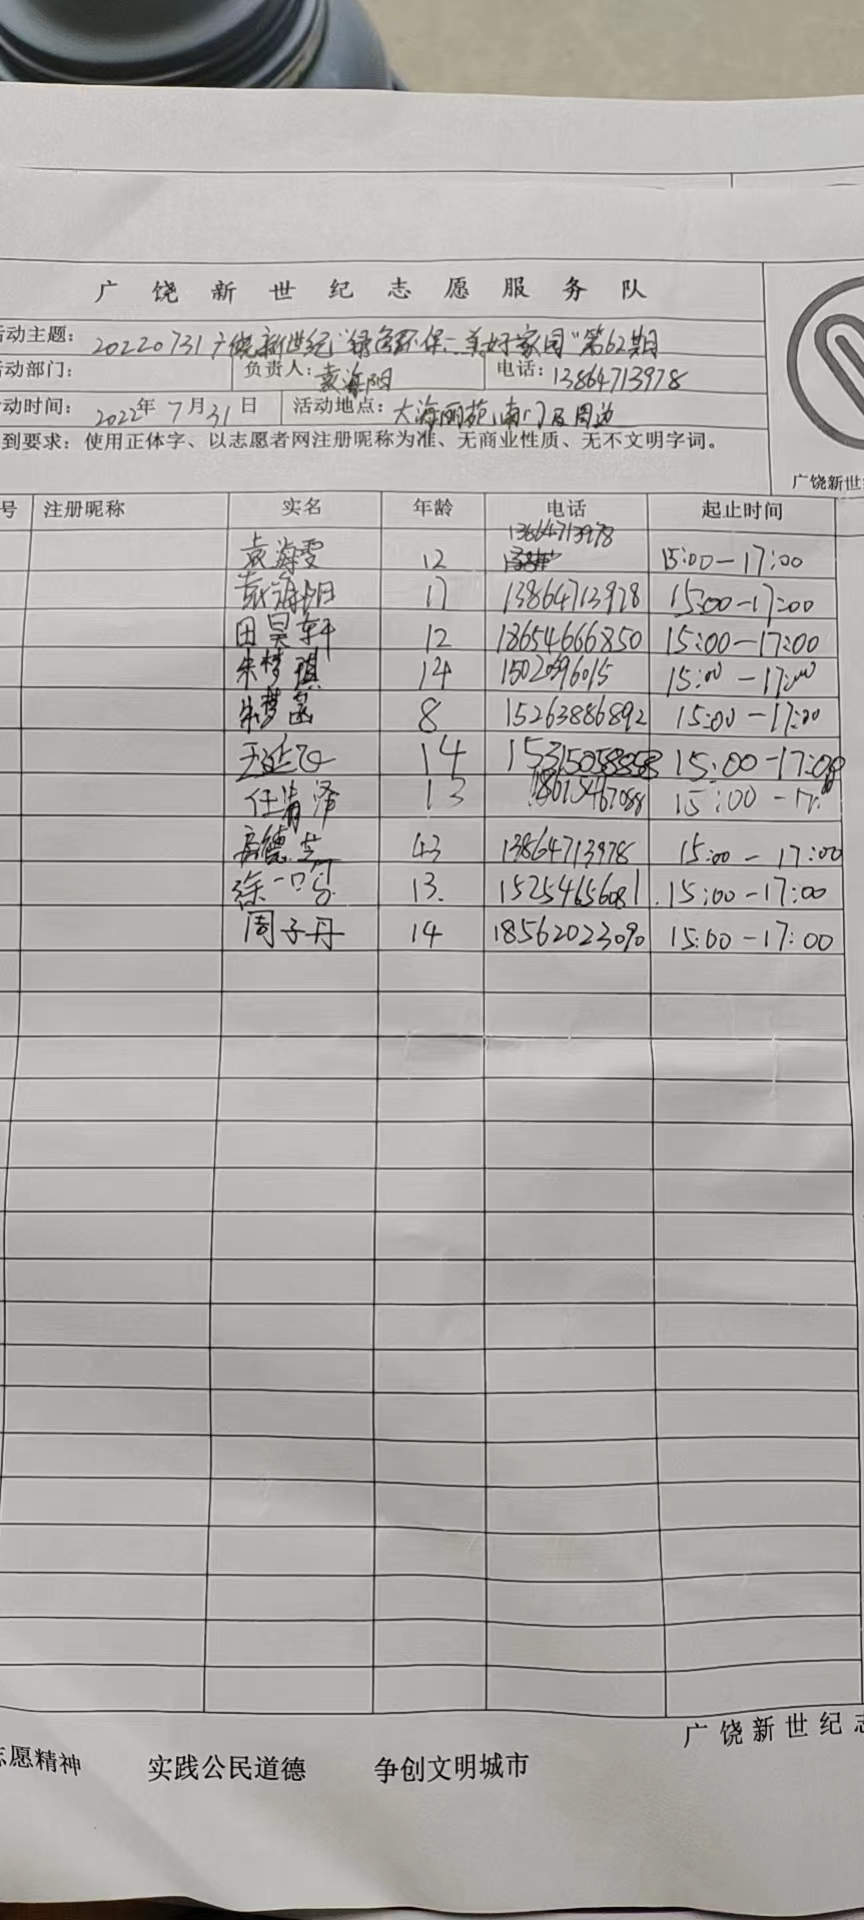 广饶新世纪志愿服务队
活动主题: 20220731广饶新世纪"绿色环保、美好家园"第62期
活动部门: 负责人: 袁海阳 电话: 13864713978
动时间: 2022年7月31日 活动地点: 大海丽苑南门及周边
到要求: 使用正体字、以志愿者网注册昵称为准、无商业性质、无不文明字词。
广饶新世
号 注册昵称 实名 年龄 电话 起止时间
袁海雯 12 13864713978 15:00-17:00
袁海阳 17 13864713978 15:00-17:00
田昊轩 12 18654666850 15:00-17:00
朱梦琪 14 15:00-17:00
朱梦菡 8 15263886892 15:00-17:00
王延飞 14 15:00-17:00
任清泽 13 15:00-17:00
德 43 13864713978 15:00-17:00
徐一 13. 15254656081 15:00-17:00
周子丹 14 18562023090 15:00-17:00
广饶新世纪志
志愿精神 实践公民道德 争创文明城市